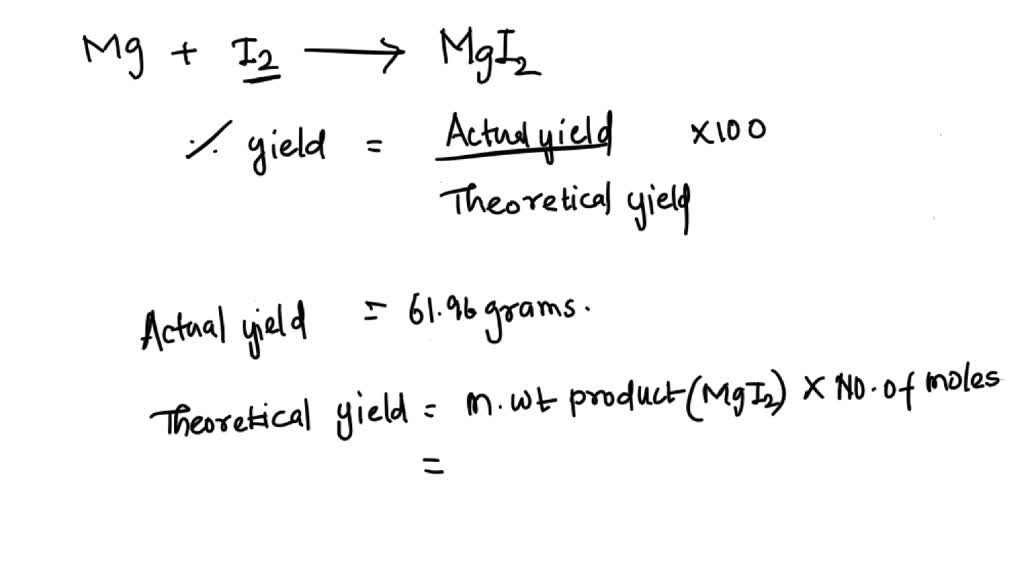 Mg + I2 ⟶ MgI2
% yield = Actual yield ×100
Theoretical yield
Actual yield = 61.96 grams.
Theoretical yield = m.wt product (MgI2) × No. of moles
=